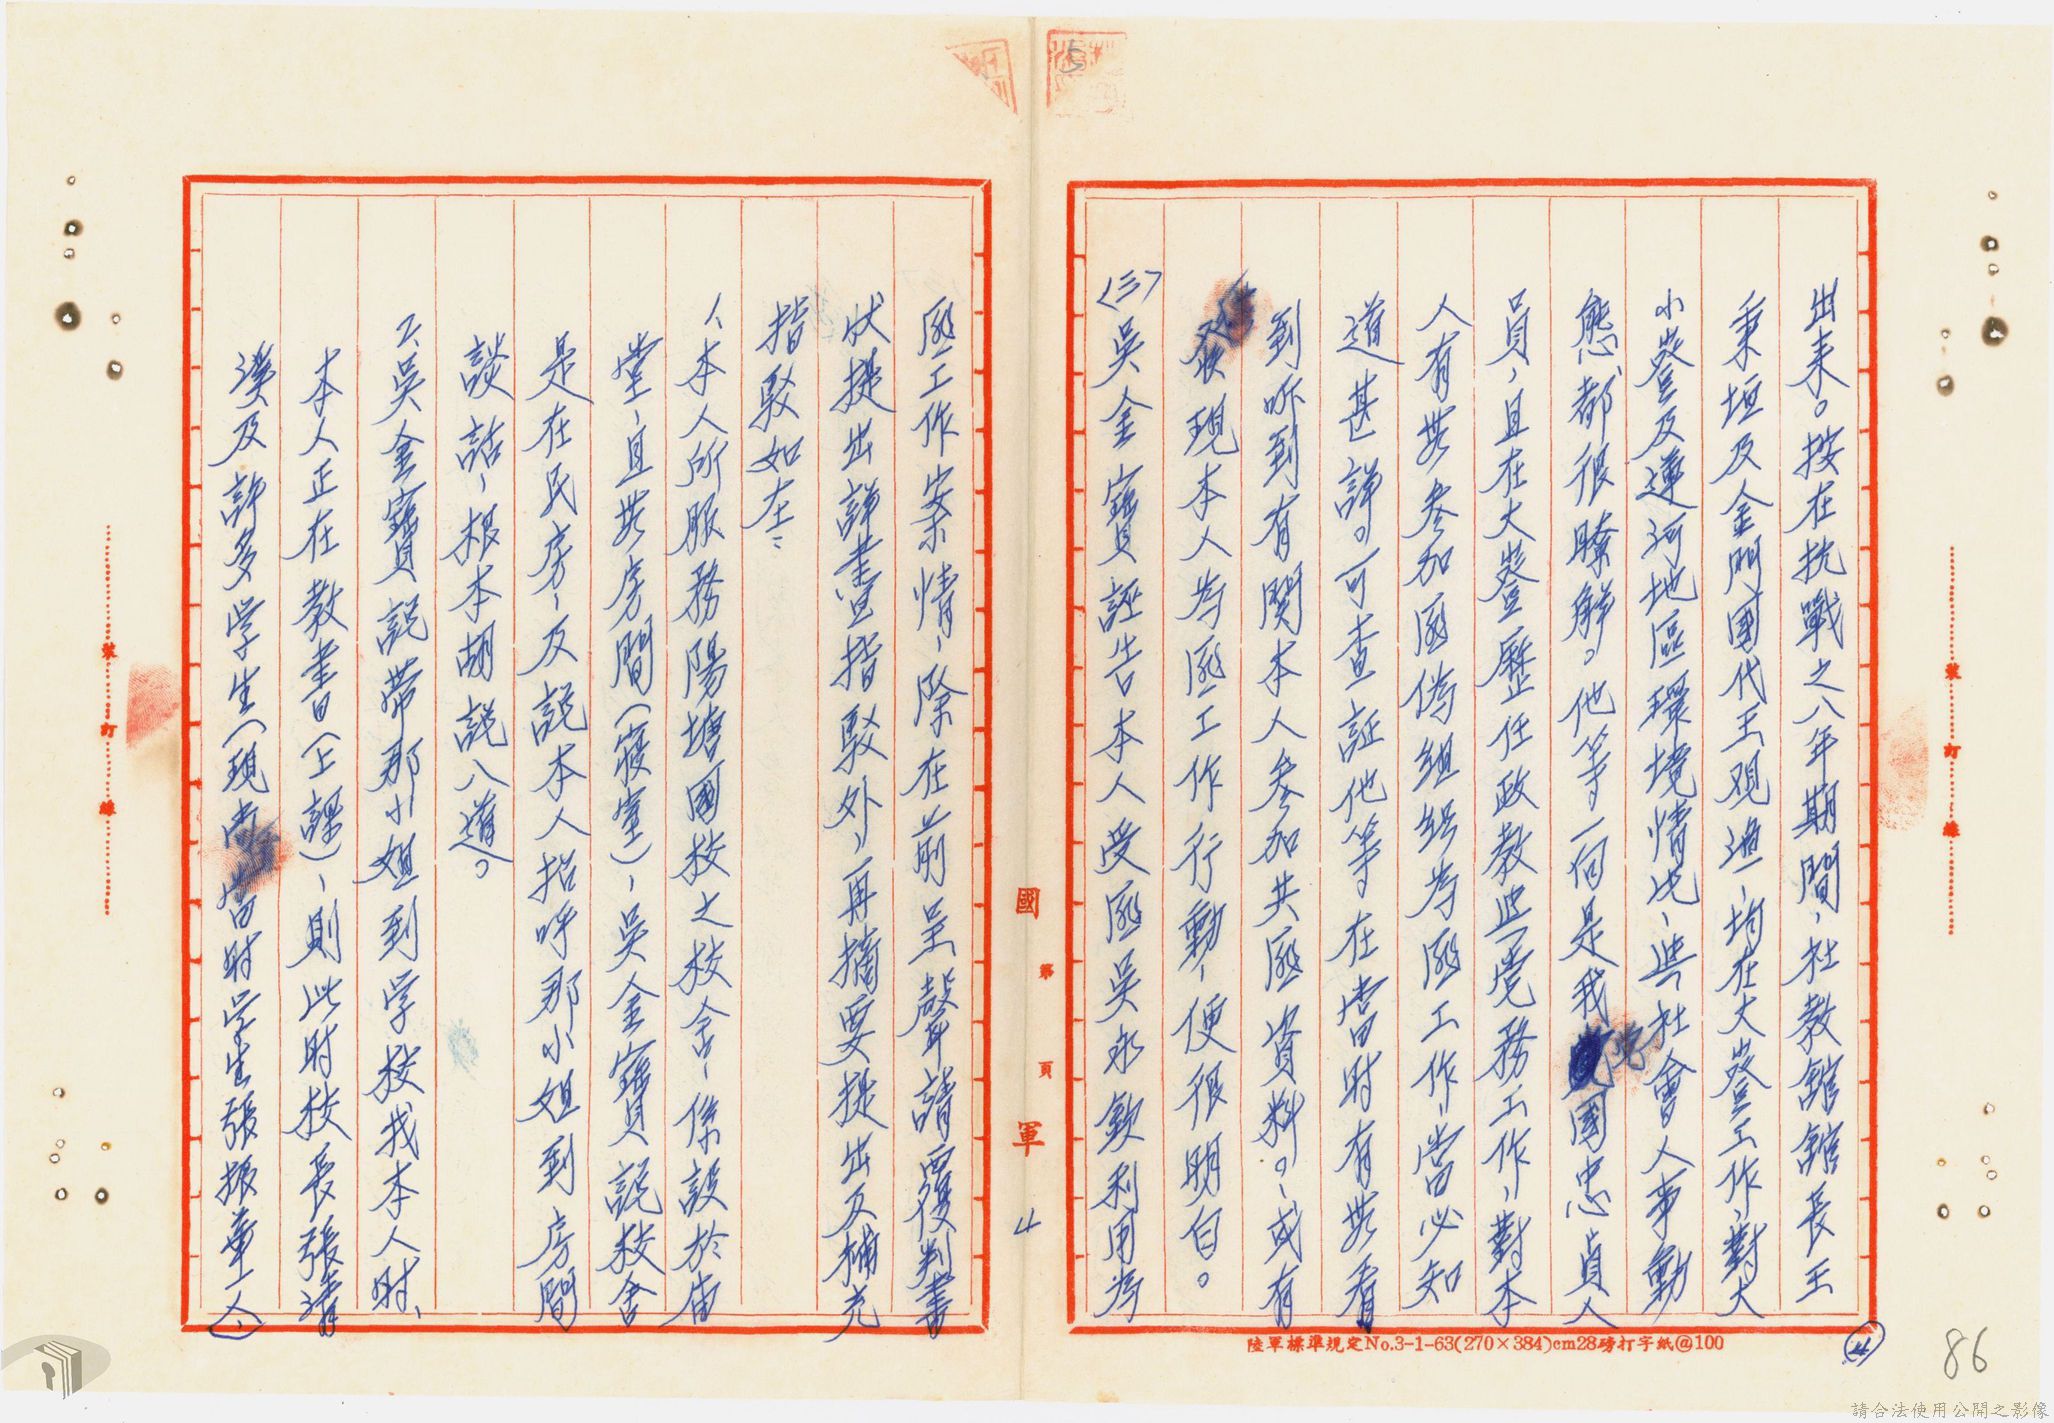 出来。按在抗戰之八年期間，社教館館長王
秉垣及金門團代王观漁，均在大登工作，對大
小登及蓮河地區環境情况，與社會人事動
態都很瞭解。他等一向是我国忠貞人
員，且在大登歷任政教与党務工作，對本
人有無參加匪偽組織為匪工作，當必知
道甚詳。可查証他等在當時有無看
到听到有関本人參加共匪資料。或有
发現本人為匪工作行動，便很明白。
〈三〉吳金寶誣告本人受匪吳永欽利用為
匪工作案情，除在前呈聲請覆判書
狀提出詳盡指駁外，再摘要提出及補充
指駁如左：
1、本人所服務陽塘國校之校舍，係設於庙
堂，且無房間（寢室），吳金寶説校舍
是在民房，及説本人招呼那小姐到房間
談話，根本胡説八道。
2、吳金寶説帶那小姐到学校找本人時，
本人正在教書（上課），則此時校長張清
漢及許多学生（現尚
當時学生張振華一人
國
軍
第
頁
4
裝
訂
線
裝
訂
線
陸軍標準規定No.3-1-63(270×384)cm28磅打字紙@100
4
5
86
請合法使用公開之影像